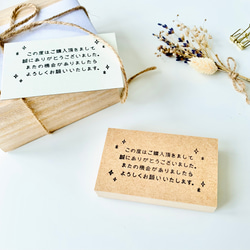 この度はご購入頂きまして
誠にありがとうございました。
またの機会がありましたら
よろしくお願いいたします。
この度はご購入頂きまして
誠にありがとうございました。
またの機会がありましたら
よろしくお願いいたします。